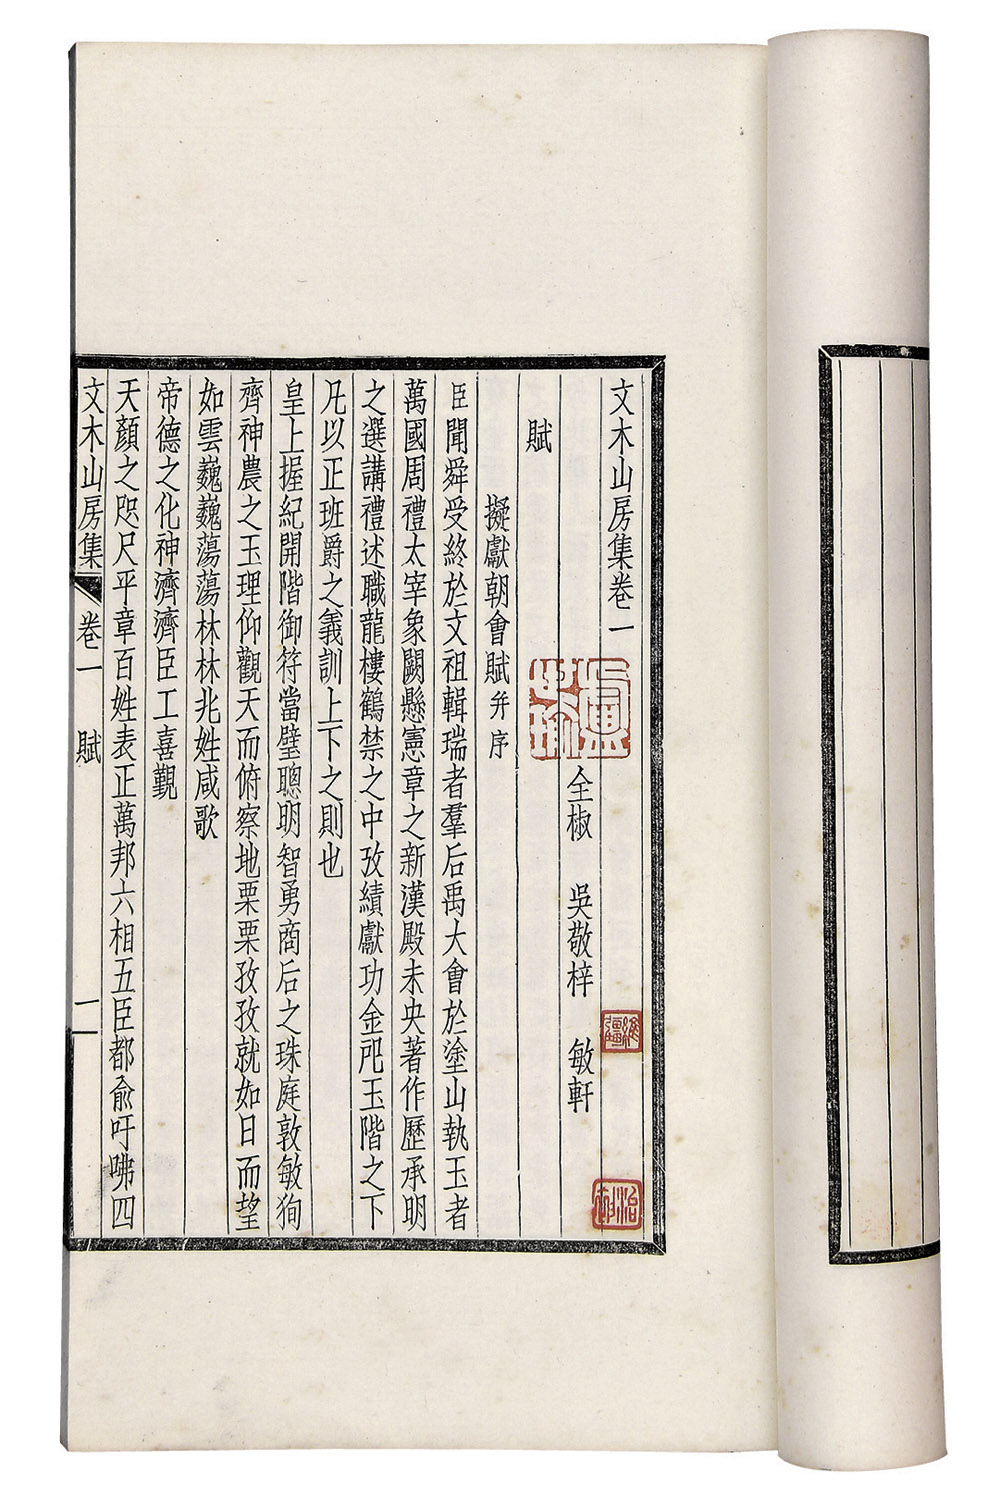 文木山房集卷一
全椒 吳敬梓 敏軒
賦
擬獻朝會賦并序
臣聞舜受終於文祖輯瑞者羣后禹大會於塗山執玉者
萬國周禮太宰象闕懸憲章之新漢殿未央著作歷承明
之選講禮述職龍樓鶴禁之中攷績獻功金戺玉階之下
凡以正班爵之義訓上下之則也
皇上握紀開階御符當璧聰明智勇商后之珠庭敦敏徇
齊神農之玉理仰觀天而俯察地栗栗孜孜就如日而望
如雲巍巍蕩蕩林林兆姓咸歌
帝德之化神濟濟臣工喜覲
天顏之咫尺平章百姓表正萬邦六相五臣都俞吁咈四
文木山房集 卷一 賦 一
維疆